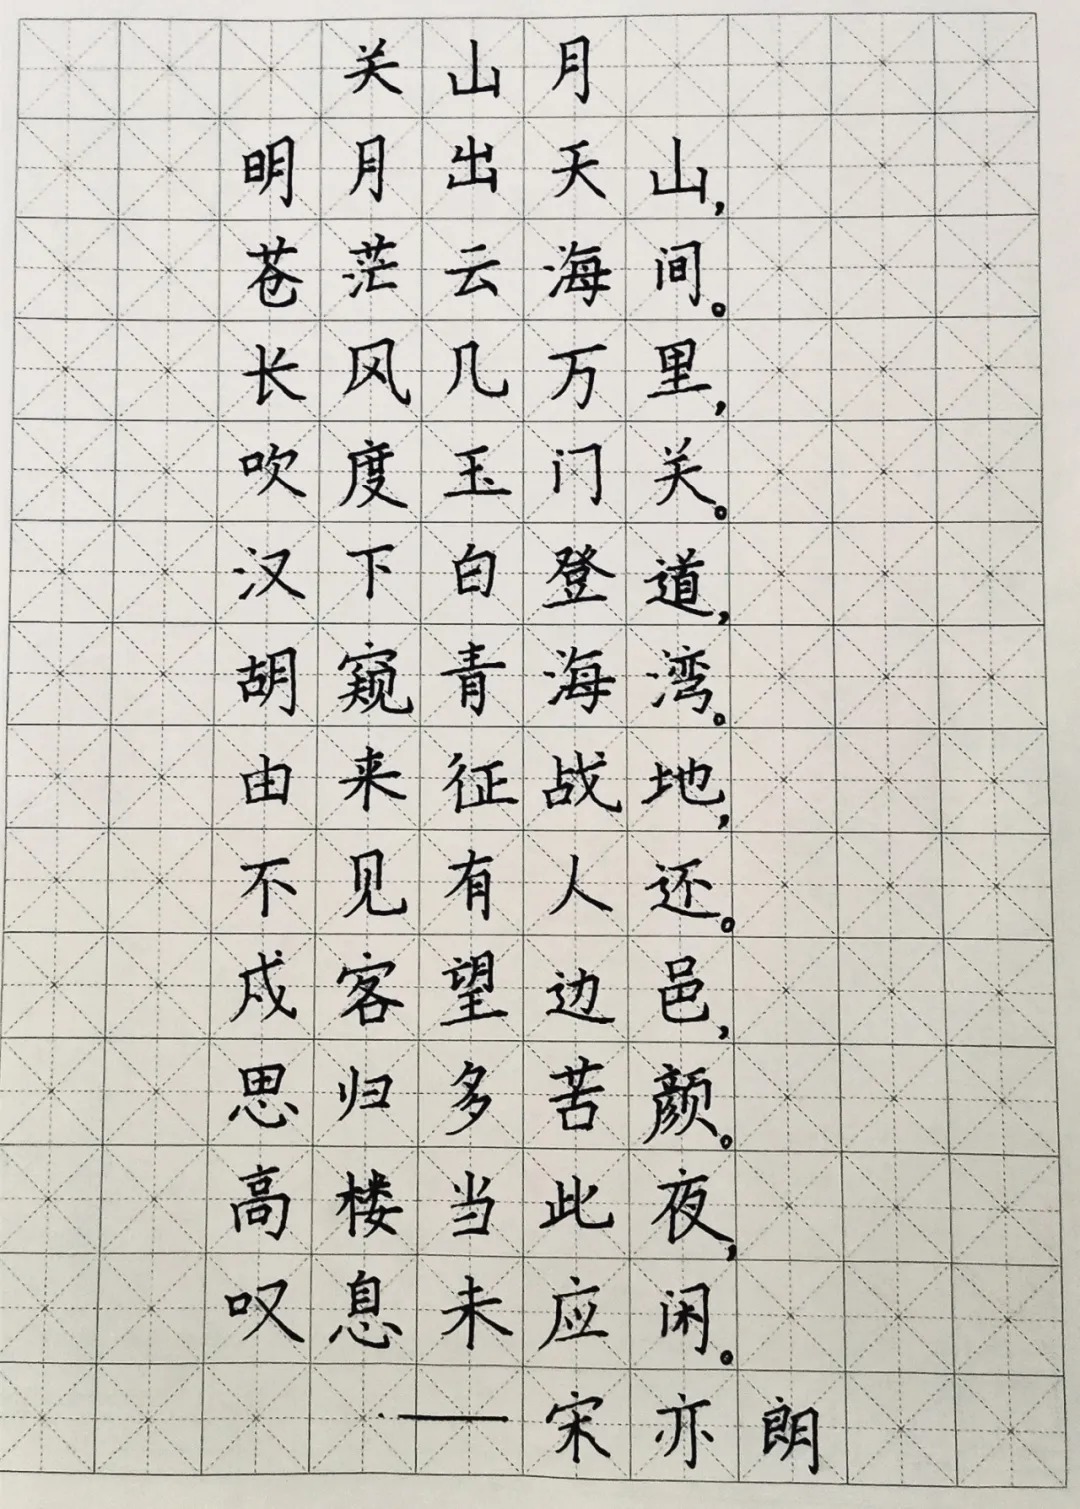 关山月
明月出天山，
苍茫云海间。
长风几万里，
吹度玉门关。
汉下白登道，
胡窥青海湾。
由来征战地，
不见有人还。
戍客望边邑，
思归多苦颜。
高楼当此夜，
叹息未应闲。
——宋亦朗